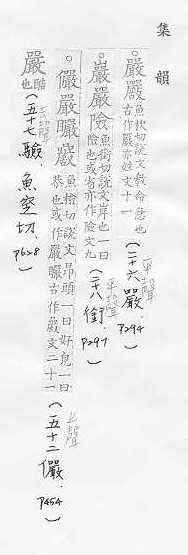 集韻
嚴 魚杴切說文教命急也
古作嚴亦姓文十一 (二十六嚴. 平聲 P294)
巖 嚴 險 魚銜切說文岸也一曰
險也或省亦作險文九 (二十八銜. 平聲 P297)
儼 嚴 曮 魚檢切說文昂頭一曰好皃一曰
恭也或作嚴曮古作 文二十一 (五十二儼. 上聲 P454)
嚴 酷
也 (五十七驗. 去聲 魚窆切. P628)